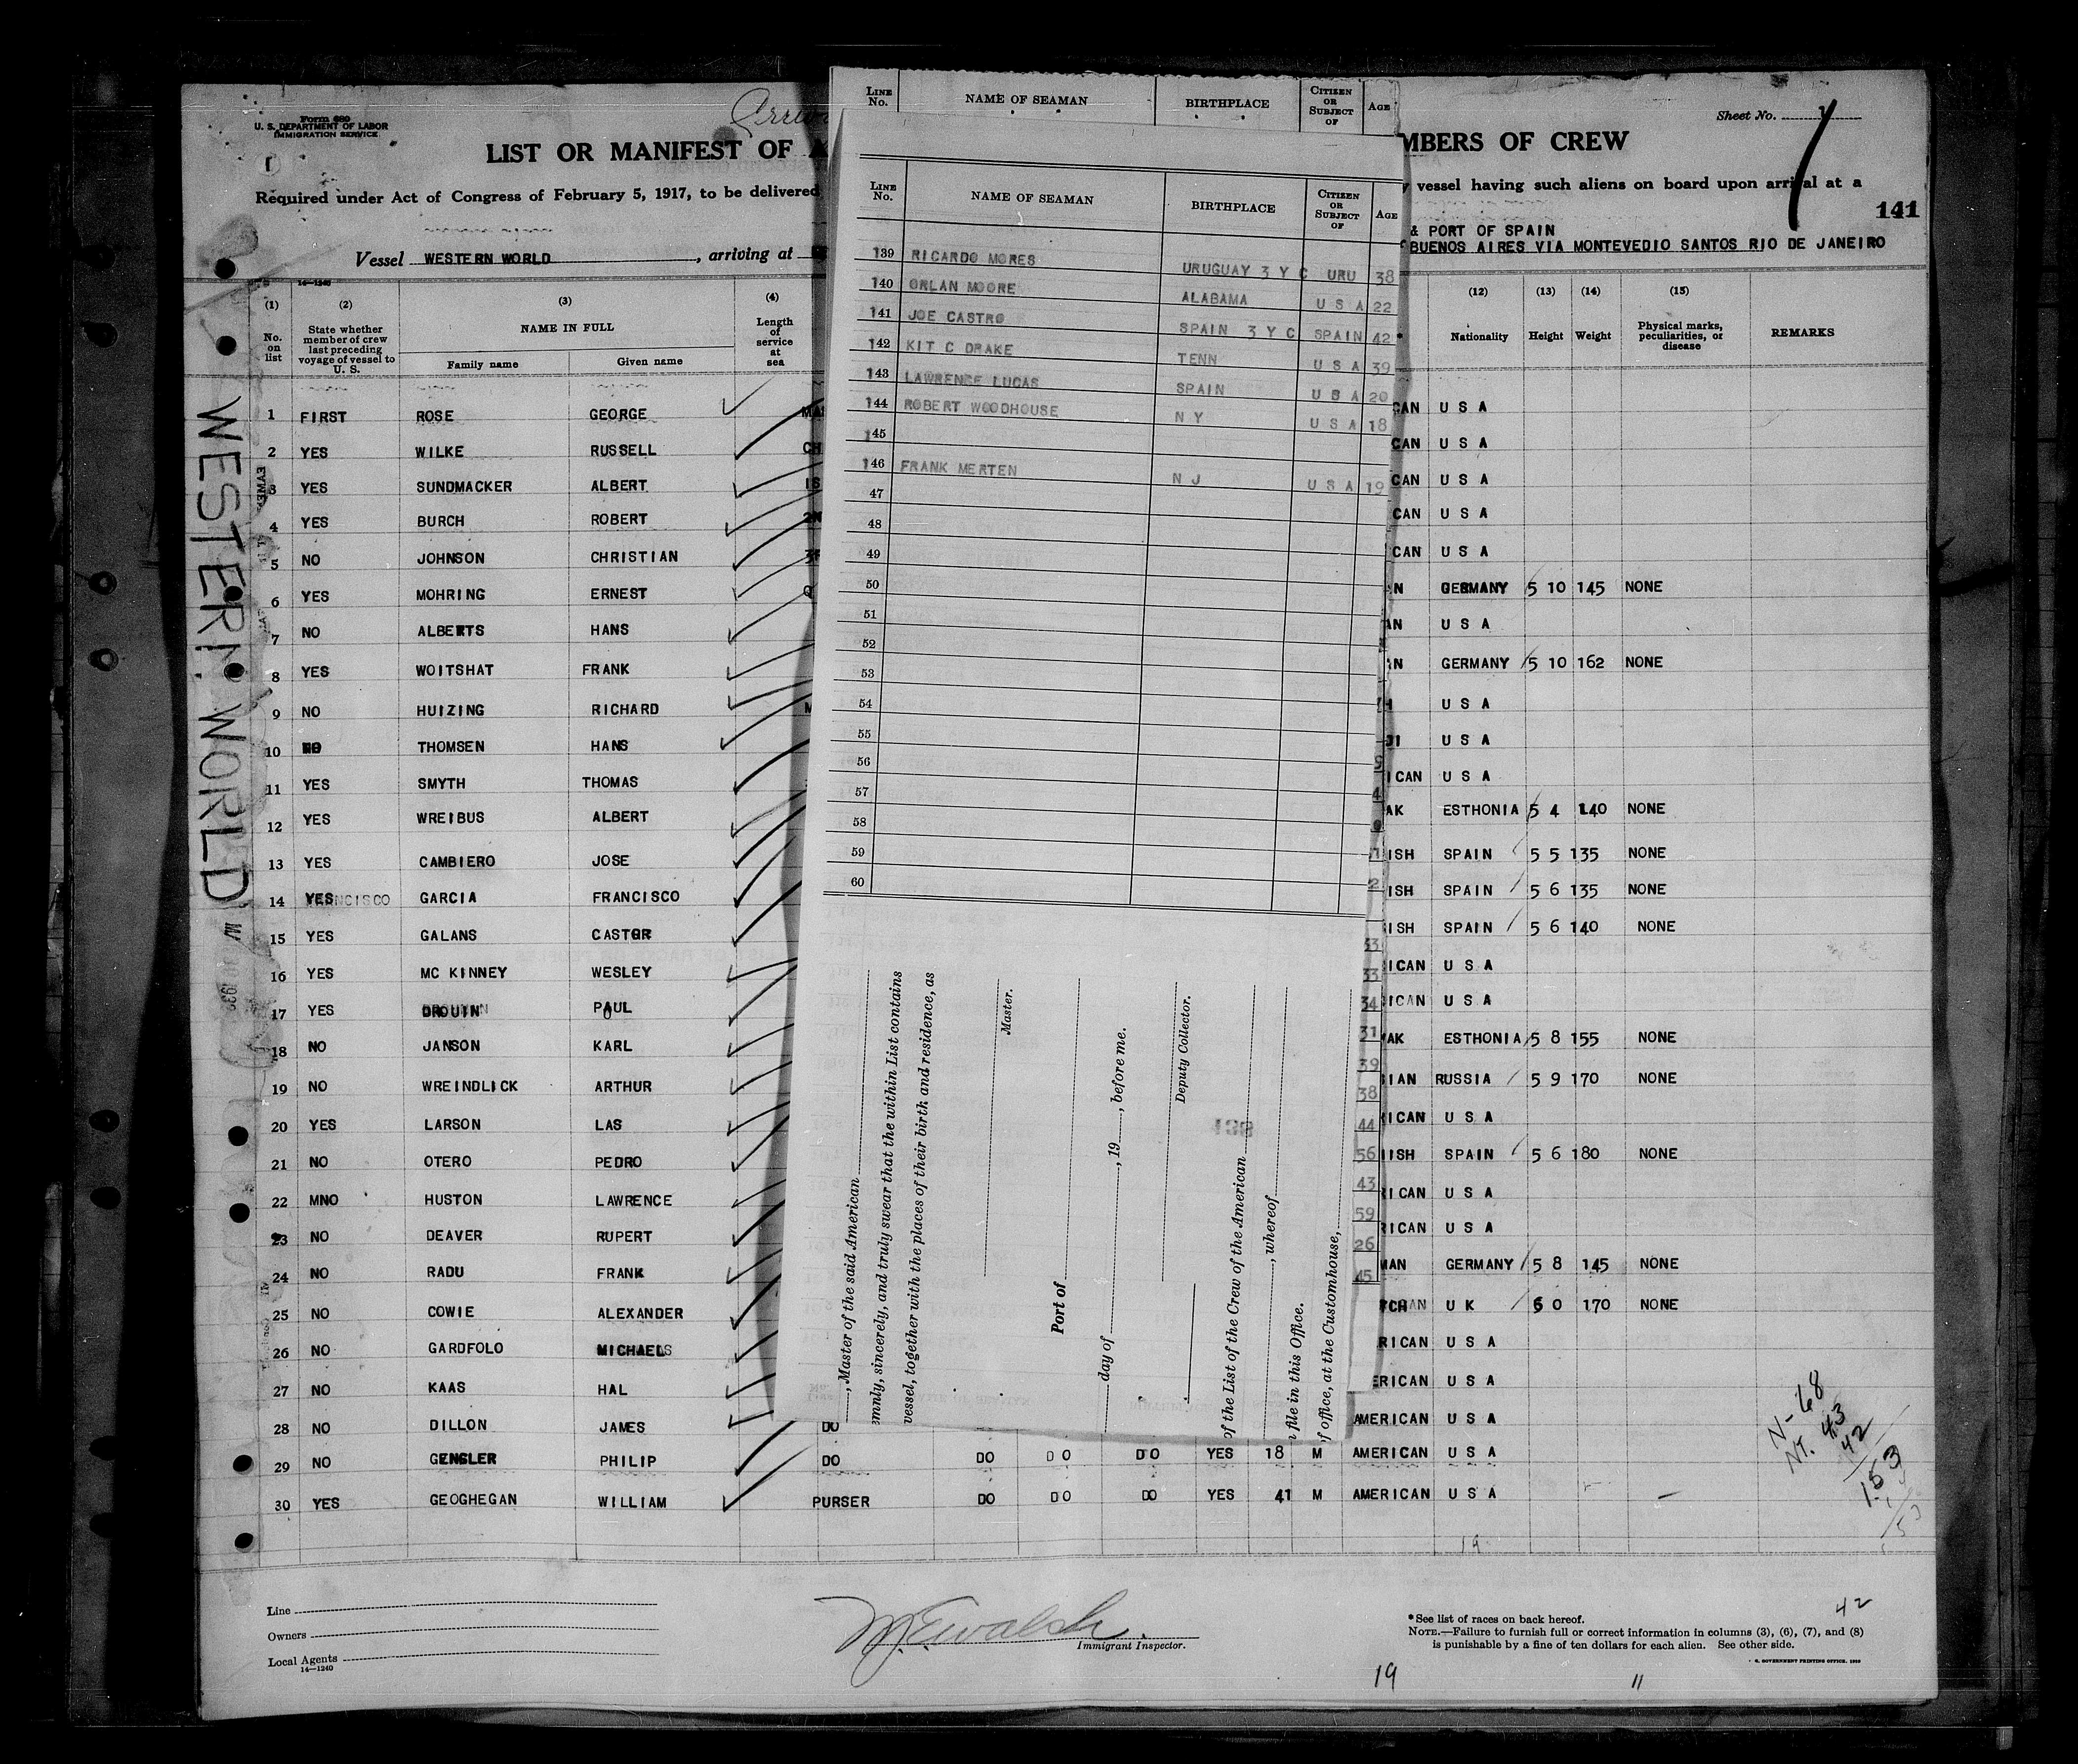 Form 680
U. S. DEPARTMENT OF LABOR
IMMIGRATION SERVICE
Sheet No. 1
LIST OR MANIFEST OF
MBERS OF CREW
Required under Act of Congress of February 5, 1917, to be delivered
vessel having such aliens on board upon arrival at a
141
& PORT OF SPAIN
Vessel WESTERN WORLD, arriving at
BUENOS AIRES VIA MONTEVEDIO SANTOS RIO DE JANEIRO
14—1240
(1) (2) (3) (4) (12) (13) (14) (15)
No. on list
State whether member of crew last preceding voyage of vessel to U. S.
NAME IN FULL
Family name Given name
Length of service at sea
Nationality Height Weight Physical marks, peculiarities, or disease REMARKS
1 FIRST ROSE GEORGE CAN U S A
2 YES WILKE RUSSELL CH CAN U S A
3 YES SUNDMACKER ALBERT 1S CAN U S A
4 YES BURCH ROBERT 2N CAN U S A
5 NO JOHNSON CHRISTIAN CAN U S A
6 YES MOHRING ERNEST Q N GERMANY 5 10 145 NONE
7 NO ALBERTS HANS AN U S A
8 YES WOITSHAT FRANK N GERMANY 5 10 162 NONE
9 NO HUIZING RICHARD M H U S A
10 NO THOMSEN HANS U S A
11 YES SMYTH THOMAS ICAN U S A
12 YES WREIBUS ALBERT AK ESTHONIA 5 4 140 NONE
13 YES CAMBIERO JOSE ISH SPAIN 5 5 135 NONE
14 YES GARCIA FRANCISCO ISH SPAIN 5 6 135 NONE
15 YES GALANS CASTOR ISH SPAIN 5 6 140 NONE
16 YES MC KINNEY WESLEY ICAN U S A
17 YES DROUIN PAUL ICAN U S A
18 NO JANSON KARL AK ESTHONIA 5 8 155 NONE
19 NO WREINDLICK ARTHUR IAN RUSSIA 5 9 170 NONE
20 YES LARSON LAS ICAN U S A
21 NO OTERO PEDRO ISH SPAIN 5 6 180 NONE
22 MNO HUSTON LAWRENCE ICAN U S A
23 NO DEAVER RUPERT RICAN U S A
24 NO RADU FRANK MAN GERMANY 5 8 145 NONE
25 NO COWIE ALEXANDER U K 6 0 170 NONE
26 NO GARDFOLO MICHAEL RICAN U S A
27 NO KAAS HAL ERICAN U S A
28 NO DILLON JAMES DO AMERICAN U S A
29 NO GENGLER PHILIP DO DO DO DO YES 18 M AMERICAN U S A
30 YES GEOGHEGAN WILLIAM PURSER DO DO DO YES 41 M AMERICAN U S A
WESTERN WORLD
LINE No. NAME OF SEAMAN BIRTHPLACE CITIZEN OR SUBJECT OF AGE
LINE No. NAME OF SEAMAN BIRTHPLACE CITIZEN OR SUBJECT OF AGE
139 RICARDO MORES URUGUAY 3 Y C URU 38
140 ORLAN MOORE ALABAMA U S A 22
141 JOE CASTRO SPAIN 3 Y C SPAIN 42
142 KIT C DRAKE TENN U S A 39
143 LAWRENCE LUCAS SPAIN U S A 20
144 ROBERT WOODHOUSE N Y U S A 18
145
146 FRANK MERTEN N J U S A 19
47
48
49
50
51
52
53
54
55
56
57
58
59
60
33
33
34
31
39
38
44
56
43
59
26
45
, Master of the said American
emnly, sincerely, and truly swear that the within List contains
vessel, together with the places of their birth and residence, as
Master.
Port of
day of , 19 , before me.
Deputy Collector.
of the List of the Crew of the American
, whereof
file in this Office.
f office, at the Customhouse,
N-68
NT. 43
42
153
Line
Owners
Local Agents
14—1240
W. J. Ewalsh.
Immigrant Inspector.
* See list of races on back hereof.
NOTE.—Failure to furnish full or correct information in columns (3), (6), (7), and (8)
is punishable by a fine of ten dollars for each alien. See other side.
GOVERNMENT PRINTING OFFICE
42
19
11